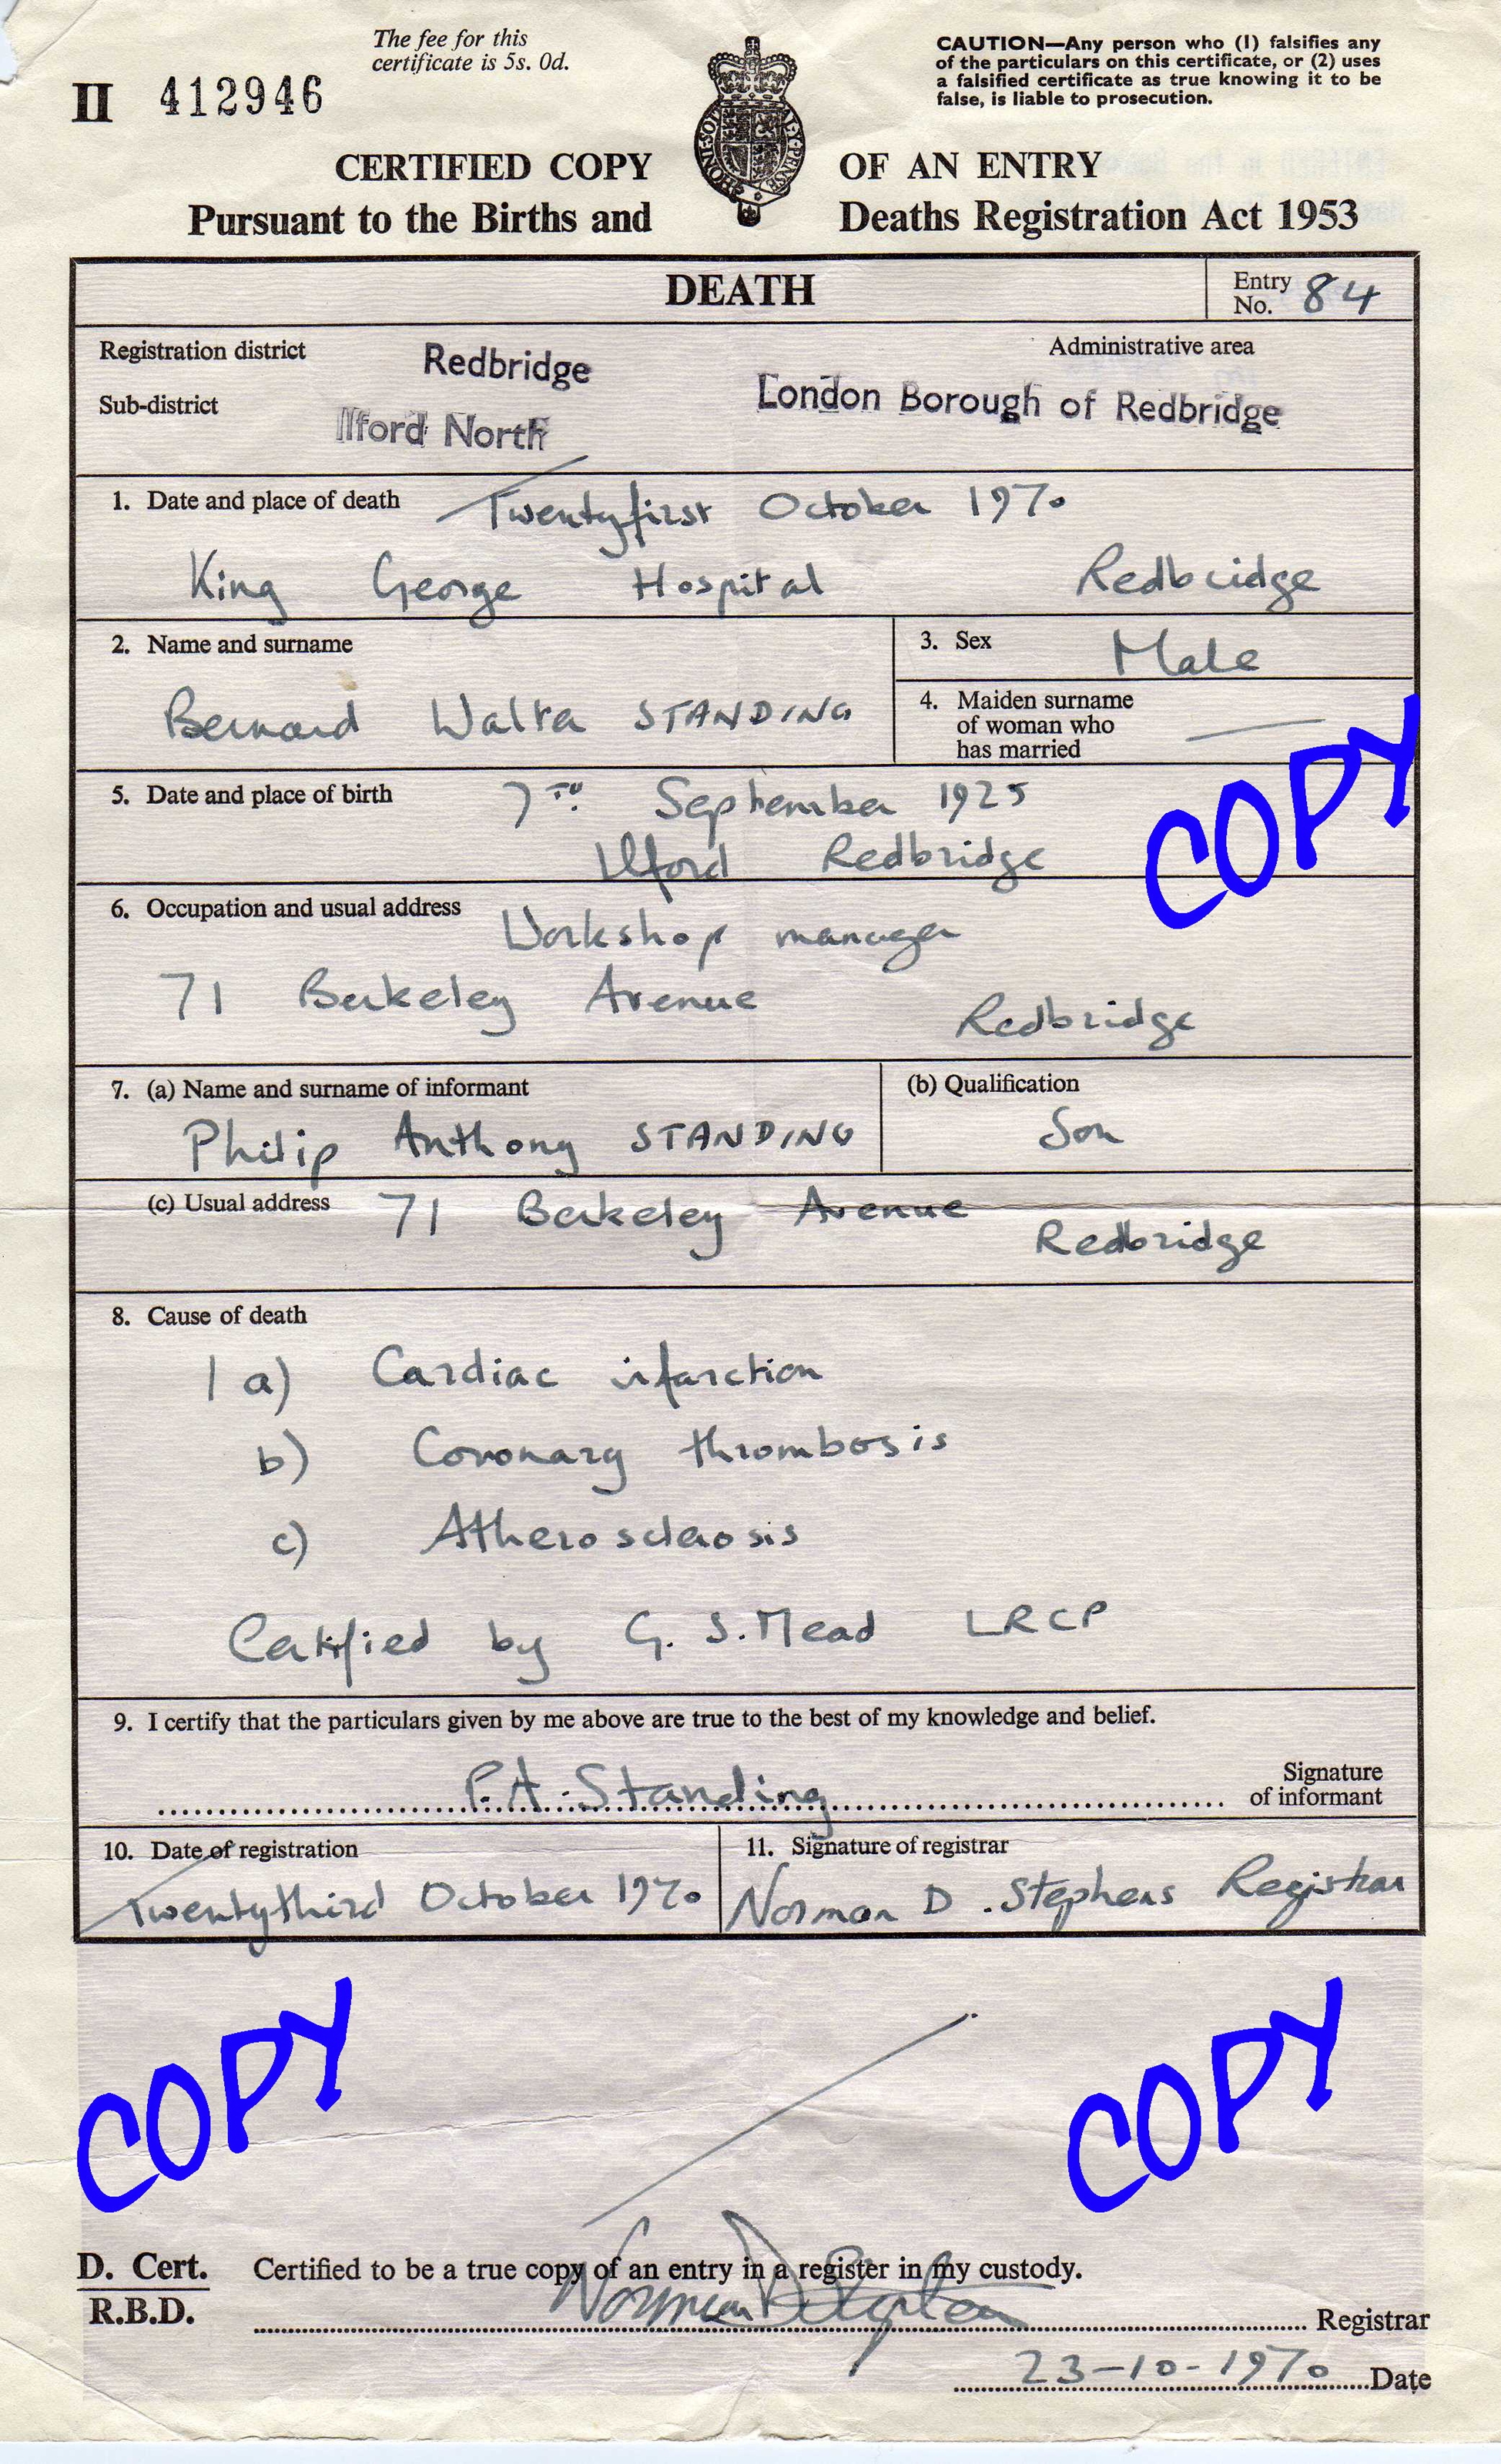 The fee for this
certificate is 5s. 0d.
CAUTION—Any person who (1) falsifies any
of the particulars on this certificate, or (2) uses
a falsified certificate as true knowing it to be
false, is liable to prosecution.
II 412946
CERTIFIED COPY OF AN ENTRY
Pursuant to the Births and Deaths Registration Act 1953
HONI SOIT QUI MAL Y PENSE
DEATH
Entry No. 84
Registration district Redbridge
Administrative area
Sub-district Ilford North
London Borough of Redbridge
1. Date and place of death Twentyfirst October 1970
King George Hospital Redbridge
2. Name and surname
Bernard Walter STANDING
3. Sex Male
4. Maiden surname
of woman who
has married —
5. Date and place of birth 7TH September 1925
Ilford Redbridge
COPY
6. Occupation and usual address Workshop manager
71 Berkeley Avenue Redbridge
7. (a) Name and surname of informant
Philip Anthony STANDING
(b) Qualification
Son
(c) Usual address 71 Berkeley Avenue
Redbridge
8. Cause of death
1 a) Cardiac infarction
b) Coronary thrombosis
c) Atherosclerosis
Certified by G. S. Mead LRCP
9. I certify that the particulars given by me above are true to the best of my knowledge and belief.
P.A. Standing
Signature
of informant
10. Date of registration
Twentythird October 1970
11. Signature of registrar
Norman D. Stephens Registrar
COPY
COPY
D. Cert.
R.B.D.
Certified to be a true copy of an entry in a register in my custody.
Norman D Stephens Registrar
23-10-1970 Date